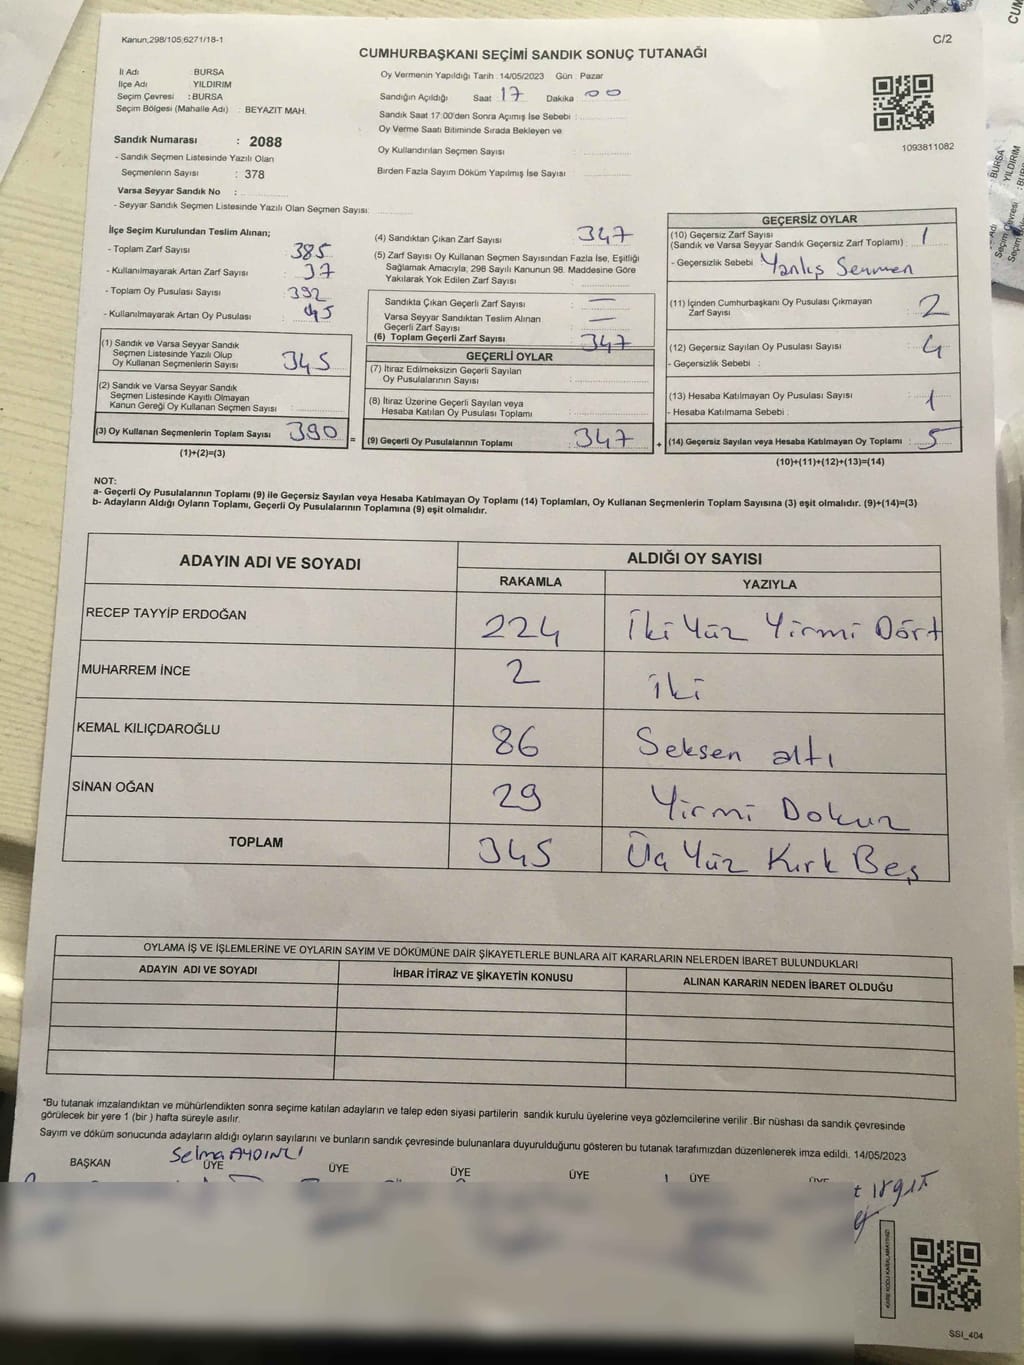 Kanun,298/105;6271/18-1
C/2
CUMHURBAŞKANI SEÇİMİ SANDIK SONUÇ TUTANAĞI
İl Adı : BURSA
İlçe Adı YILDIRIM
Seçim Çevresi : BURSA
Seçim Bölgesi (Mahalle Adı) : BEYAZIT MAH.
Sandık Numarası : 2088
- Sandık Seçmen Listesinde Yazılı Olan
Seçmenlerin Sayısı : 378
Varsa Seyyar Sandık No :
- Seyyar Sandık Seçmen Listesinde Yazılı Olan Seçmen Sayısı:
Oy Vermenin Yapıldığı Tarih : 14/05/2023 Gün : Pazar
Sandığın Açıldığı Saat : 17 Dakika 00
Sandık Saat 17:00'den Sonra Açımış İse Sebebi :
Oy Verme Saati Bitiminde Sırada Bekleyen ve
Oy Kullandırılan Seçmen Sayısı
Birden Fazla Sayım Döküm Yapılmış İse Sayısı
1093811082
İlçe Seçim Kurulundan Teslim Alınan;
- Toplam Zarf Sayısı : 385
- Kullanılmayarak Artan Zarf Sayısı : 37
- Toplam Oy Pusulası Sayısı : 392
- Kullanılmayarak Artan Oy Pusulası : 45
(1) Sandık ve Varsa Seyyar Sandık
Seçmen Listesinde Yazılı Olup
Oy Kullanan Seçmenlerin Sayısı : 345
(2) Sandık ve Varsa Seyyar Sandık
Seçmen Listesinde Kayıtlı Olmayan
Kanun Gereği Oy Kullanan Seçmen Sayısı :
(3) Oy Kullanan Seçmenlerin Toplam Sayısı 390 =
(1)+(2)=(3)
(4) Sandıktan Çıkan Zarf Sayısı : 347
(5) Zarf Sayısı Oy Kullanan Seçmen Sayısından Fazla İse, Eşitliği
Sağlamak Amacıyla, 298 Sayılı Kanunun 98. Maddesine Göre
Yakılarak Yok Edilen Zarf Sayısı :
Sandıkta Çıkan Geçerli Zarf Sayısı : —
Varsa Seyyar Sandıktan Teslim Alınan
Geçerli Zarf Sayısı : —
(6) Toplam Geçerli Zarf Sayısı : 347
GEÇERLİ OYLAR
(7) İtiraz Edilmeksizin Geçerli Sayılan
Oy Pusulalarının Sayısı :
(8) İtiraz Üzerine Geçerli Sayılan veya
Hesaba Katılan Oy Pusulası Toplamı :
(9) Geçerli Oy Pusulalarının Toplamı : 347 +
GEÇERSİZ OYLAR
(10) Geçersiz Zarf Sayısı
(Sandık ve Varsa Seyyar Sandık Geçersiz Zarf Toplamı) : 1
- Geçersizlik Sebebi : Yanlış Senmen
(11) İçinden Cumhurbaşkanı Oy Pusulası Çıkmayan
Zarf Sayısı : 2
(12) Geçersiz Sayılan Oy Pusulası Sayısı : 4
- Geçersizlik Sebebi :
(13) Hesaba Katılmayan Oy Pusulası Sayısı : 1
- Hesaba Katılmama Sebebi :
(14) Geçersiz Sayılan veya Hesaba Katılmayan Oy Toplamı : 5
(10)+(11)+(12)+(13)=(14)
NOT:
a- Geçerli Oy Pusulalarının Toplamı (9) ile Geçersiz Sayılan veya Hesaba Katılmayan Oy Toplamı (14) Toplamları, Oy Kullanan Seçmenlerin Toplam Sayısına (3) eşit olmalıdır. (9)+(14)=(3)
b- Adayların Aldığı Oyların Toplamı, Geçerli Oy Pusulalarının Toplamına (9) eşit olmalıdır.
ADAYIN ADI VE SOYADI
ALDIĞI OY SAYISI
RAKAMLA YAZIYLA
RECEP TAYYİP ERDOĞAN 224 İki Yüz Yirmi Dört
MUHARREM İNCE 2 iki
KEMAL KILIÇDAROĞLU 86 Seksen altı
SİNAN OĞAN 29 Yirmi Dokuz
TOPLAM 345 Üç Yüz Kırk Beş
OYLAMA İŞ VE İŞLEMLERİNE VE OYLARIN SAYIM VE DÖKÜMÜNE DAİR ŞİKAYETLERLE BUNLARA AİT KARARLARIN NELERDEN İBARET BULUNDUKLARI
ADAYIN ADI VE SOYADI İHBAR İTİRAZ VE ŞİKAYETİN KONUSU ALINAN KARARIN NEDEN İBARET OLDUĞU
*Bu tutanak imzalandıktan ve mühürlendikten sonra seçime katılan adayların ve talep eden siyasi partilerin sandık kurulu üyelerine veya gözlemcilerine verilir .Bir nüshası da sandık çevresinde
görülecek bir yere 1 (bir ) hafta süreyle asılır.
Sayım ve döküm sonucunda adayların aldığı oyların sayılarını ve bunların sandık çevresinde bulunanlara duyurulduğunu gösteren bu tutanak tarafımızdan düzenlenerek imza edildi. 14/05/2023
Selma AYDINLI
BAŞKAN ÜYE ÜYE ÜYE ÜYE ÜYE
SSI_404